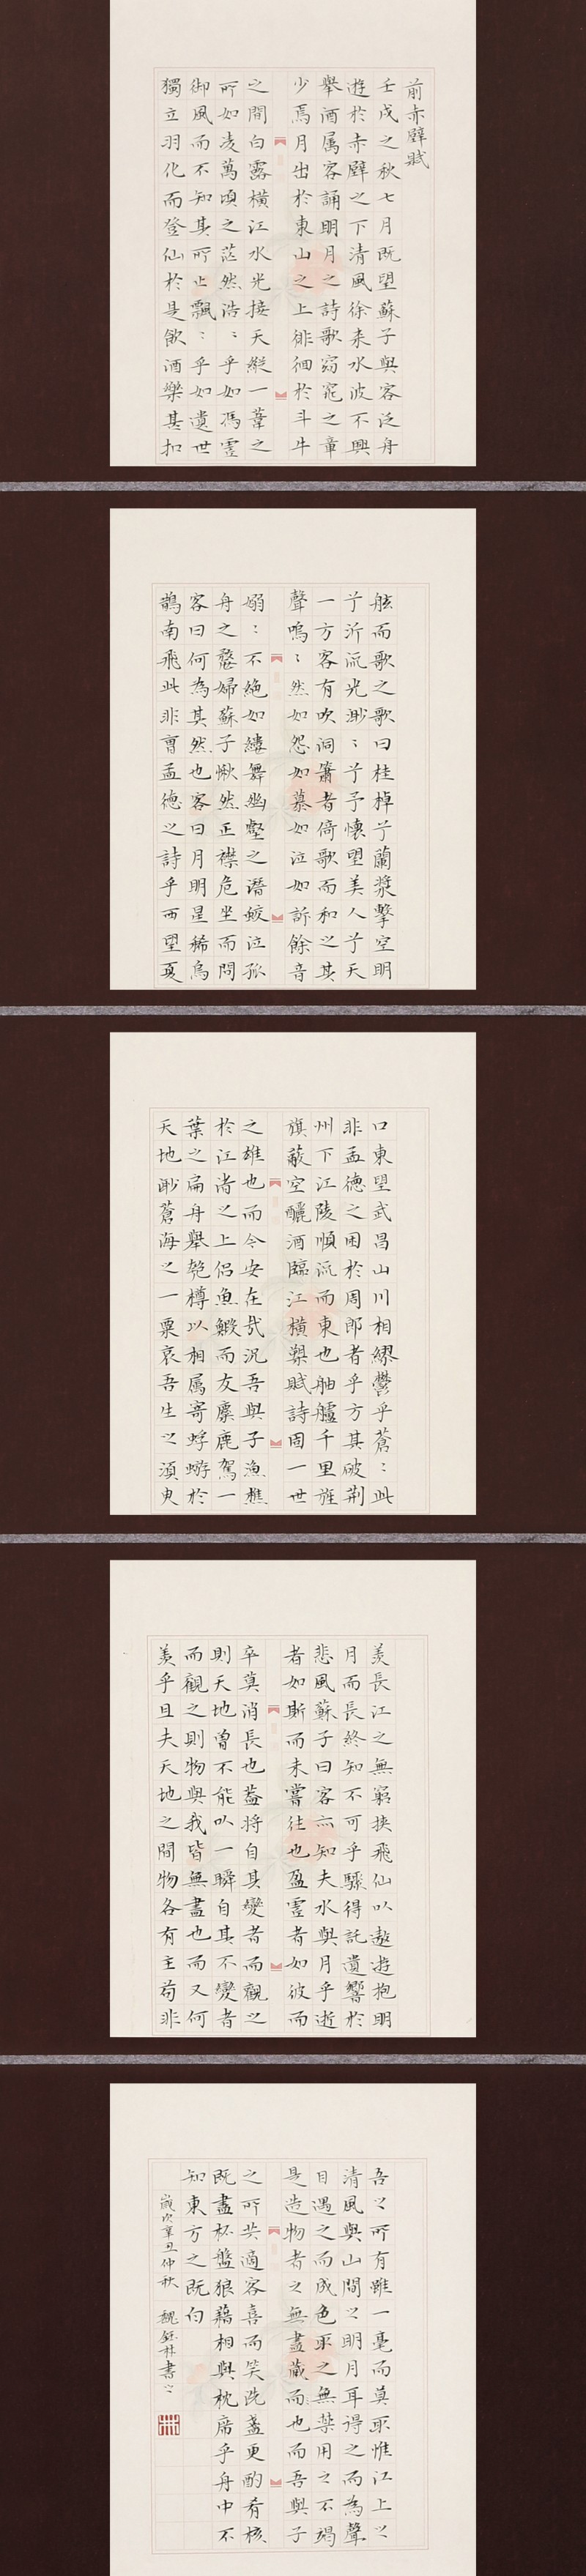 前赤壁賦
壬戌之秋七月既望蘇子與客泛舟
遊於赤壁之下清風徐来水波不興
舉酒属客誦明月之詩歌窈窕之章
少焉月出於東山之上徘徊於斗牛
之間白露横江水光接天縱一葦之
所如凌萬頃之茫然浩:乎如馮虛
御風而不知其所止飄:乎如遺世
獨立羽化而登仙於是飲酒樂甚扣
舷而歌之歌曰桂棹兮蘭漿擊空明
兮泝流光渺:兮予懷望美人兮天
一方客有吹洞簫者倚歌而和之其
聲嗚:然如怨如慕如泣如訴餘音
嫋:不絶如縷舞幽壑之潛蛟泣孤
舟之嫠婦蘇子愀然正襟危坐而問
客曰何為其然也客曰月明星稀烏
鵲南飛此非曹孟德之詩乎西望夏
口東望武昌山川相繆鬱乎蒼:此
非孟德之困於周郎者乎方其破荆
州下江陵順流而東也舳艫千里旌
旗蔽空釃酒臨江橫槊賦詩固一世
之雄也而今安在哉況吾與子漁樵
於江渚之上侣魚鰕而友麋鹿駕一
葉之扁舟舉匏樽以相属寄蜉蝣於
天地眇蒼海之一粟哀吾生之須臾
羨長江之無窮挾飛仙以遨遊抱明
月而長終知不可乎驟得託遺響於
悲風蘇子曰客亦知夫水與月乎逝
者如斯而未嘗往也盈虛者如彼而
卒莫消長也蓋将自其變者而觀之
則天地曾不能以一瞬自其不變者
而觀之則物與我皆無盡也而又何
羨乎且夫天地之間物各有主苟非
吾之所有雖一毫而莫取惟江上之
清風與山間之明月耳得之而為聲
目遇之而成色取之無禁用之不竭
是造物者之無盡藏而也而吾與子
之所共適客喜而笑洗盞更酌肴核
既盡杯盤狼藉相與枕席乎舟中不
知東方之既白
歲次辛丑仲秋 魏 林書之